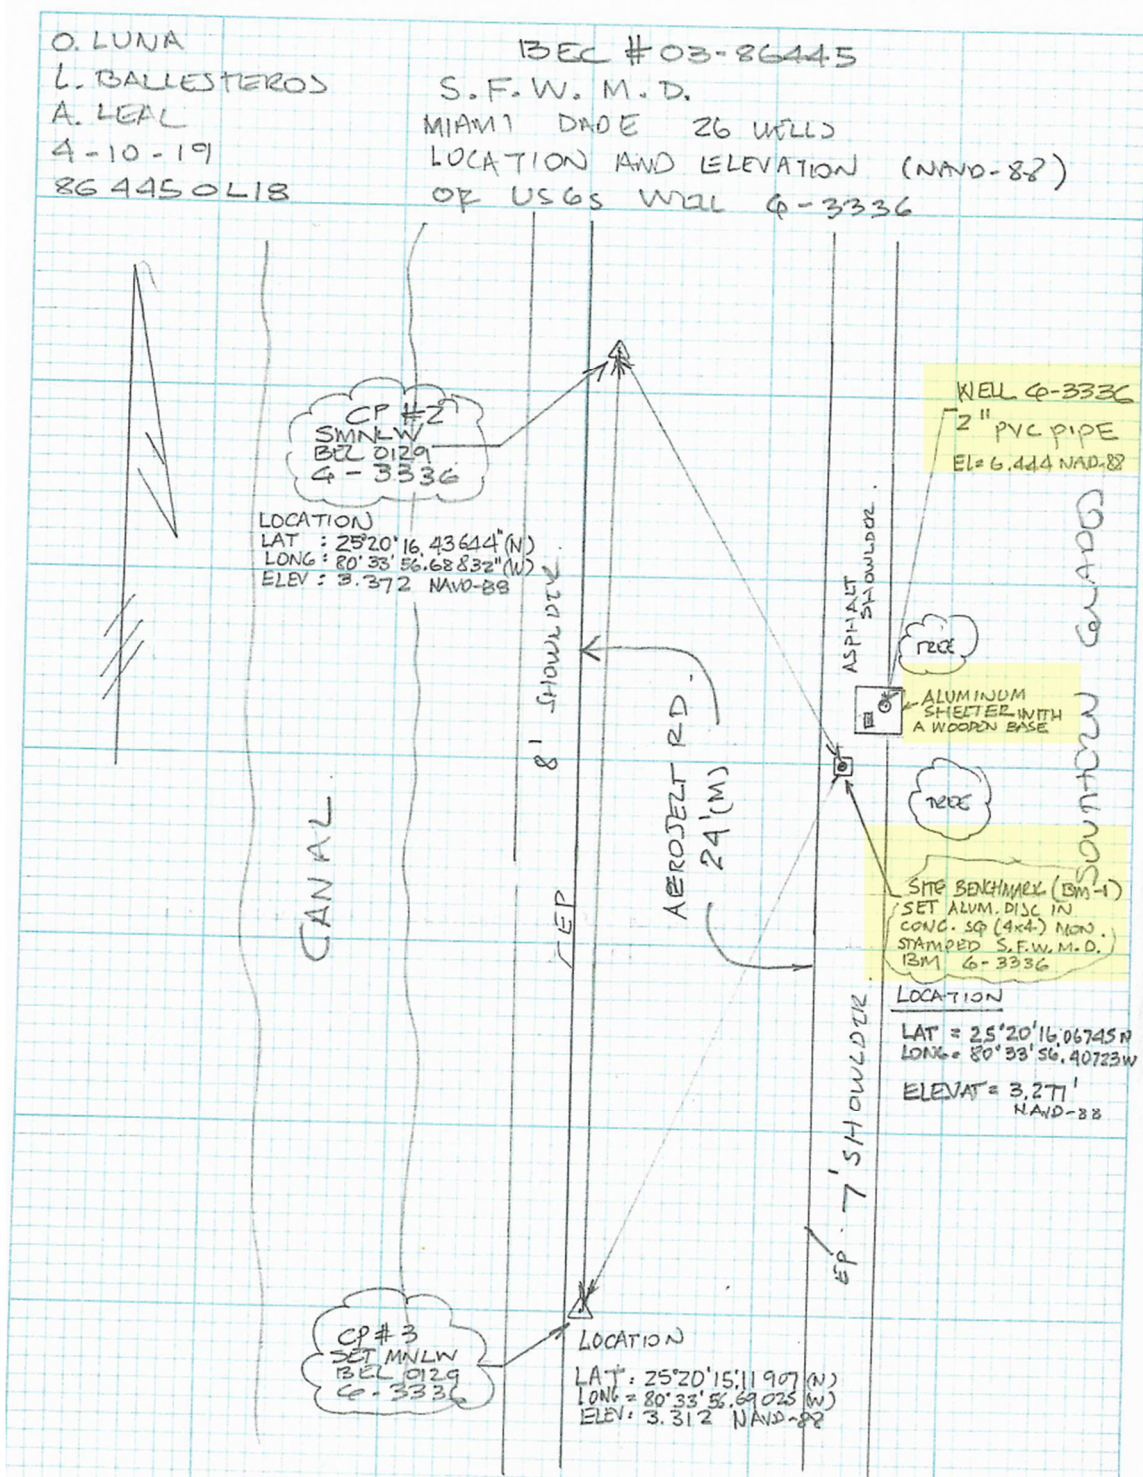 O. LUNA
L. BALLESTEROS
A. LEAL
4-10-19
864450L18
BEC # 03-86445
S.F.W.M.D.
MIAMI DADE 26 WELLS
LOCATION AND ELEVATION (NAVD-88)
OF USGS WELL G-3336
CP #2
SMNLW
BEL 0129
G-3336
LOCATION
LAT : 25°20'16.43644"(N)
LONG : 80°33'56.68832"(W)
ELEV : 3.372 NAVD-88
WELL G-3336
2" PVC PIPE
El= 6.444 NAD-88
8' SHOWLDER
ASPHALT
SHOWLDER
SOUTHERN GLADES
TREE
ALUMINUM
SHELTER WITH
A WOODEN BASE
TREE
CANAL
EP
AEROJELT RD.
24'(M)
SITE BENCHMARK (BM-1)
SET ALUM. DISC IN
CONC. SQ (4x4) MON.
STAMPED S.F.W.M.D.
BM G-3336
LOCATION
LAT = 25°20'16.06745N
LONG = 80°33'56.40723W
ELEVAT = 3.277'
NAVD-88
EP 7' SHOWLDER
CP #3
SET MNLW
BEL 0129
G-3336
LOCATION
LAT : 25°20'15.11907 (N)
LONG = 80°33'56.69025 (W)
ELEV : 3.312 NAVD-88